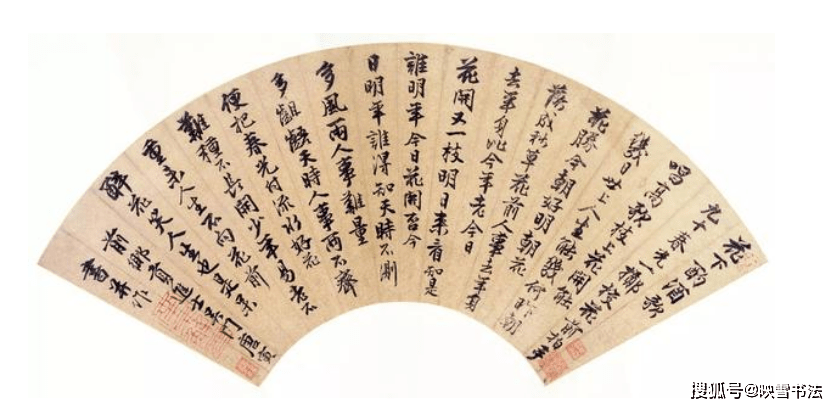 花下酌酒歌
九十春光一擲梭花
前拍手
唱高歌枝上花開能
幾日世上人生能幾何昨朝
花勝今朝好明朝花
落成秋草花前人事去年身
去年身比今年老今日
花開又一枝明日來看知是
誰明年今日花開否今
日明年誰得知天時不測
多風雨人事難量
多齟齬天時人事兩不齊
便把春光付流水好花
難種不長開少年易老不
重來人生不向花前
醉花笑人生也是呆
前鄉貢進士吳門唐寅
書並作
搜狐号@映雪书法